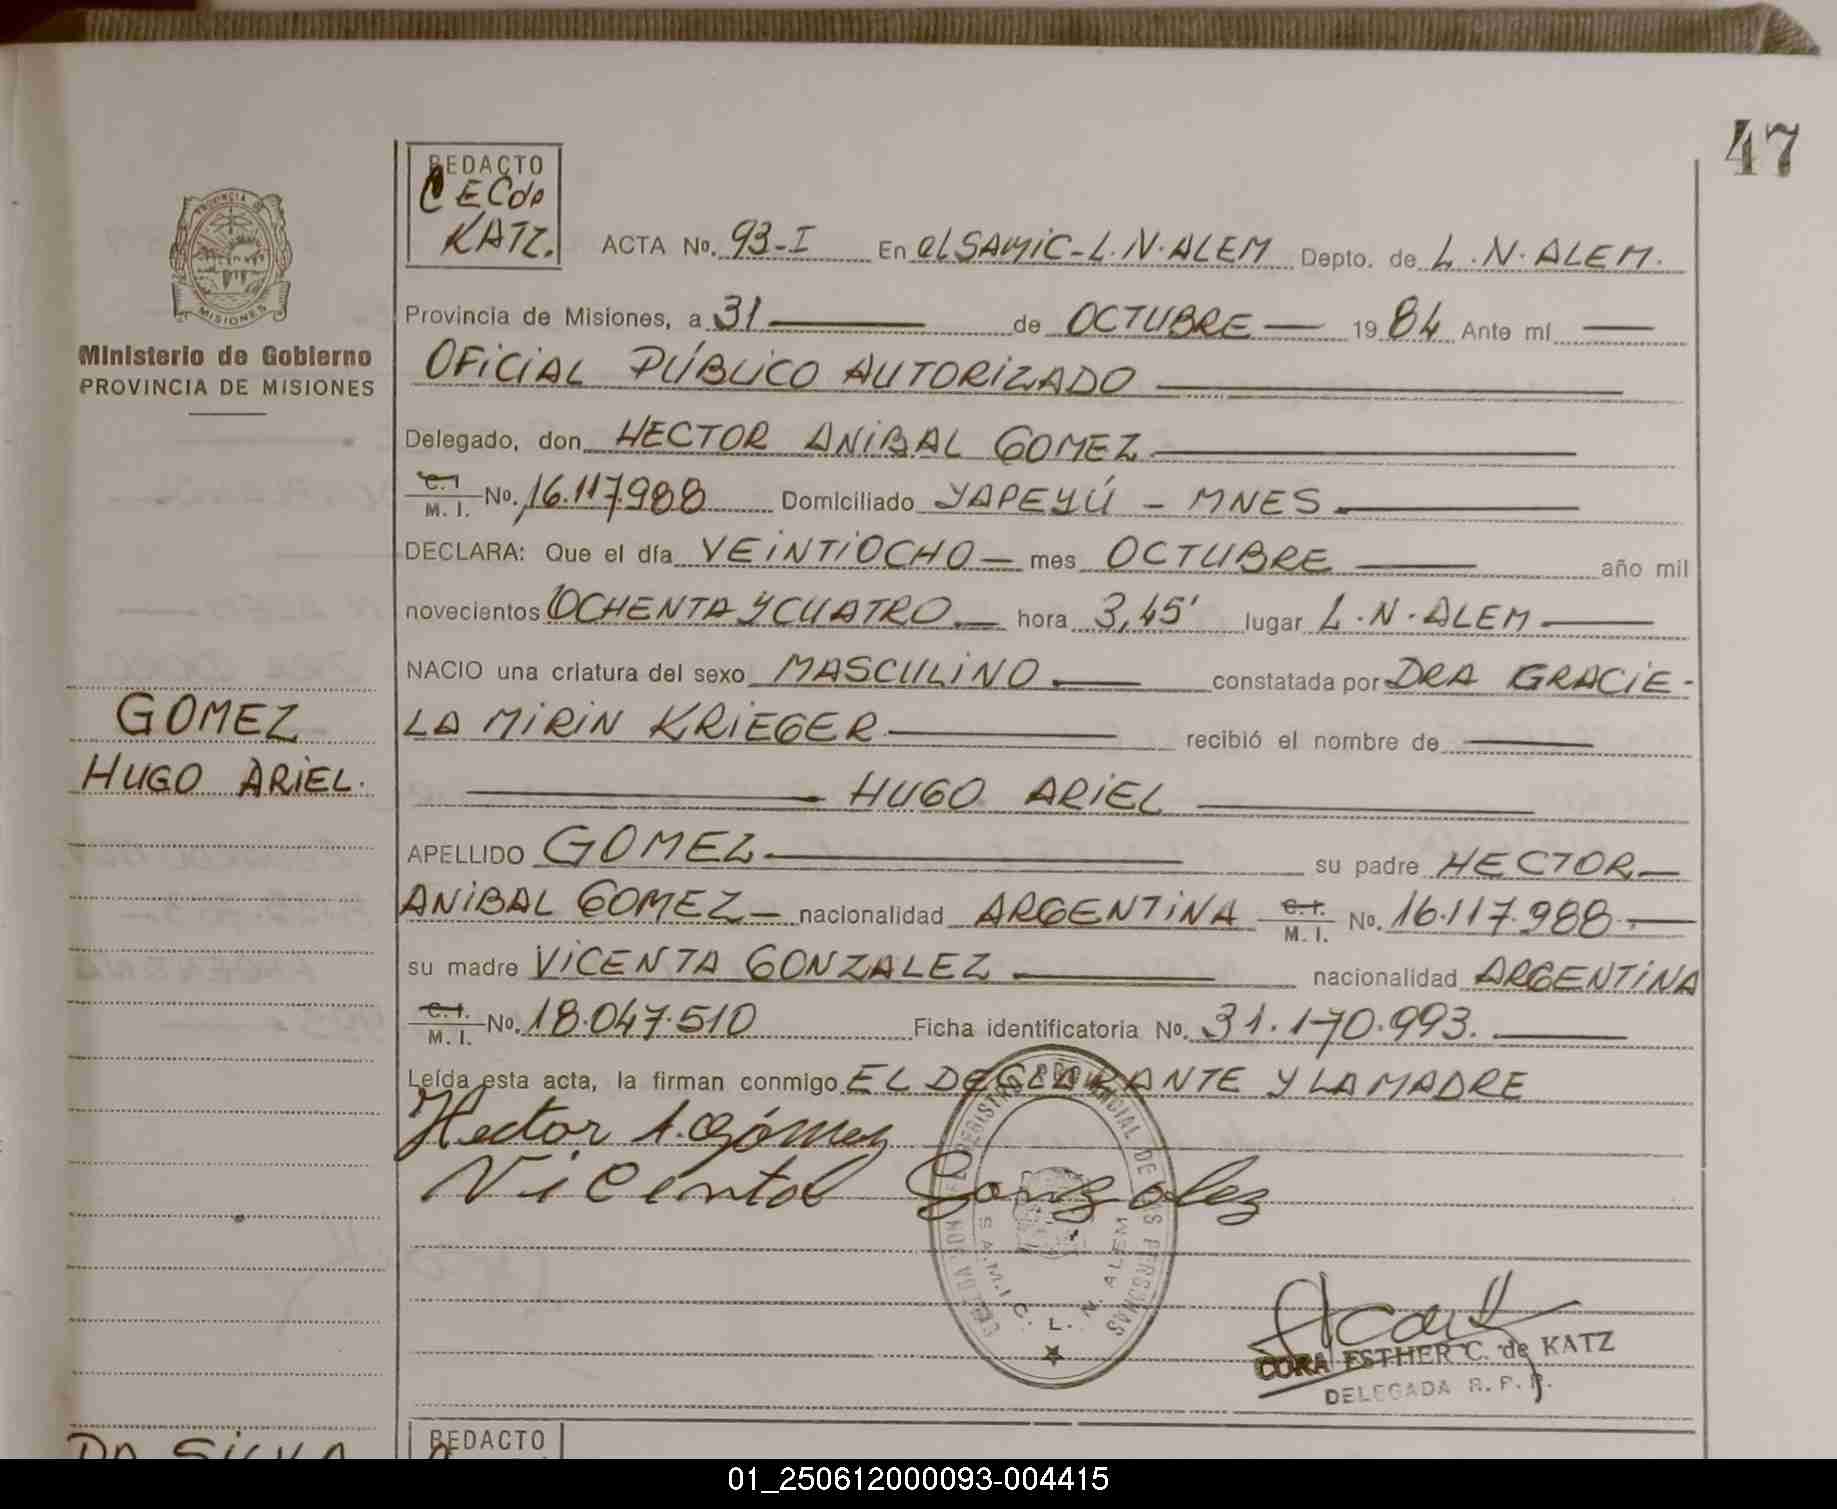 47
REDACTO
C E C de
KATZ.
ACTA No. 93-I En el SAMIC - L. N. ALEM Depto. de L. N. ALEM.
PROVINCIA DE
MISIONES
Ministerio de Gobierno
PROVINCIA DE MISIONES
Provincia de Misiones, a 31 de OCTUBRE 1984 Ante mí
OFICIAL PÚBLICO AUTORIZADO
Delegado, don HECTOR ANIBAL GOMEZ
C. I. M. I. No. 16.117.988 Domiciliado YAPEYÚ - MNES
DECLARA: Que el día VEINTIOCHO mes OCTUBRE año mil
novecientos OCHENTA Y CUATRO hora 3,45' lugar L. N. ALEM
NACIO una criatura del sexo MASCULINO constatada por DRA GRACIE-
LA MIRIN KRIEGER recibió el nombre de
HUGO ARIEL
GOMEZ
HUGO ARIEL.
APELLIDO GOMEZ su padre HECTOR
ANIBAL GOMEZ nacionalidad ARGENTINA C. I. M. I. No. 16.117.988
su madre VICENTA GONZALEZ nacionalidad ARGENTINA
C. I. M. I. No. 18.047.510 Ficha identificatoria No. 31.170.993.
Leída esta acta, la firman conmigo EL DECLARANTE Y LA MADRE
Hector A. Gómez
Vicenta Gonzalez
REGISTRO PROVINCIAL DE LAS PERSONAS
S.A.M.I.C. L. N. ALEM
CORA ESTHER C. de KATZ
DELEGADA R. P. P.
DA SILVA
REDACTO
01_250612000093-004415